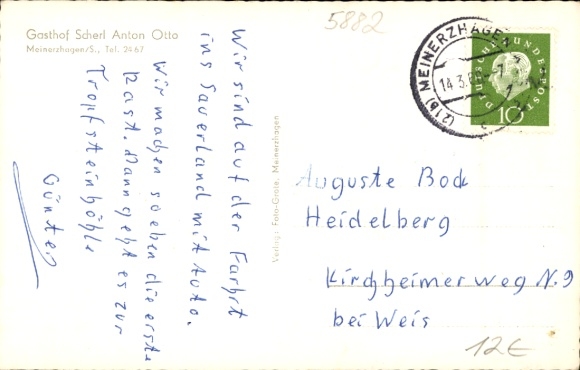 Gasthof Scherl Anton Otto
Meinerzhagen/S., Tel. 2467
5882
Wir sind auf der Farhrt
ins Sauerland mit Auto.
Wir machen soeben die erste
Rast. Dann geht es zur
Tropfsteinhöhle
Günter
Verlag: Foto-Grote, Meinerzhagen
(21b) MEINERZHAGEN
14.3.
DEUTSCHE BUNDESPOST
10
Auguste Bock
Heidelberg
Kirchheimer weg N.9
bei Weis
12€